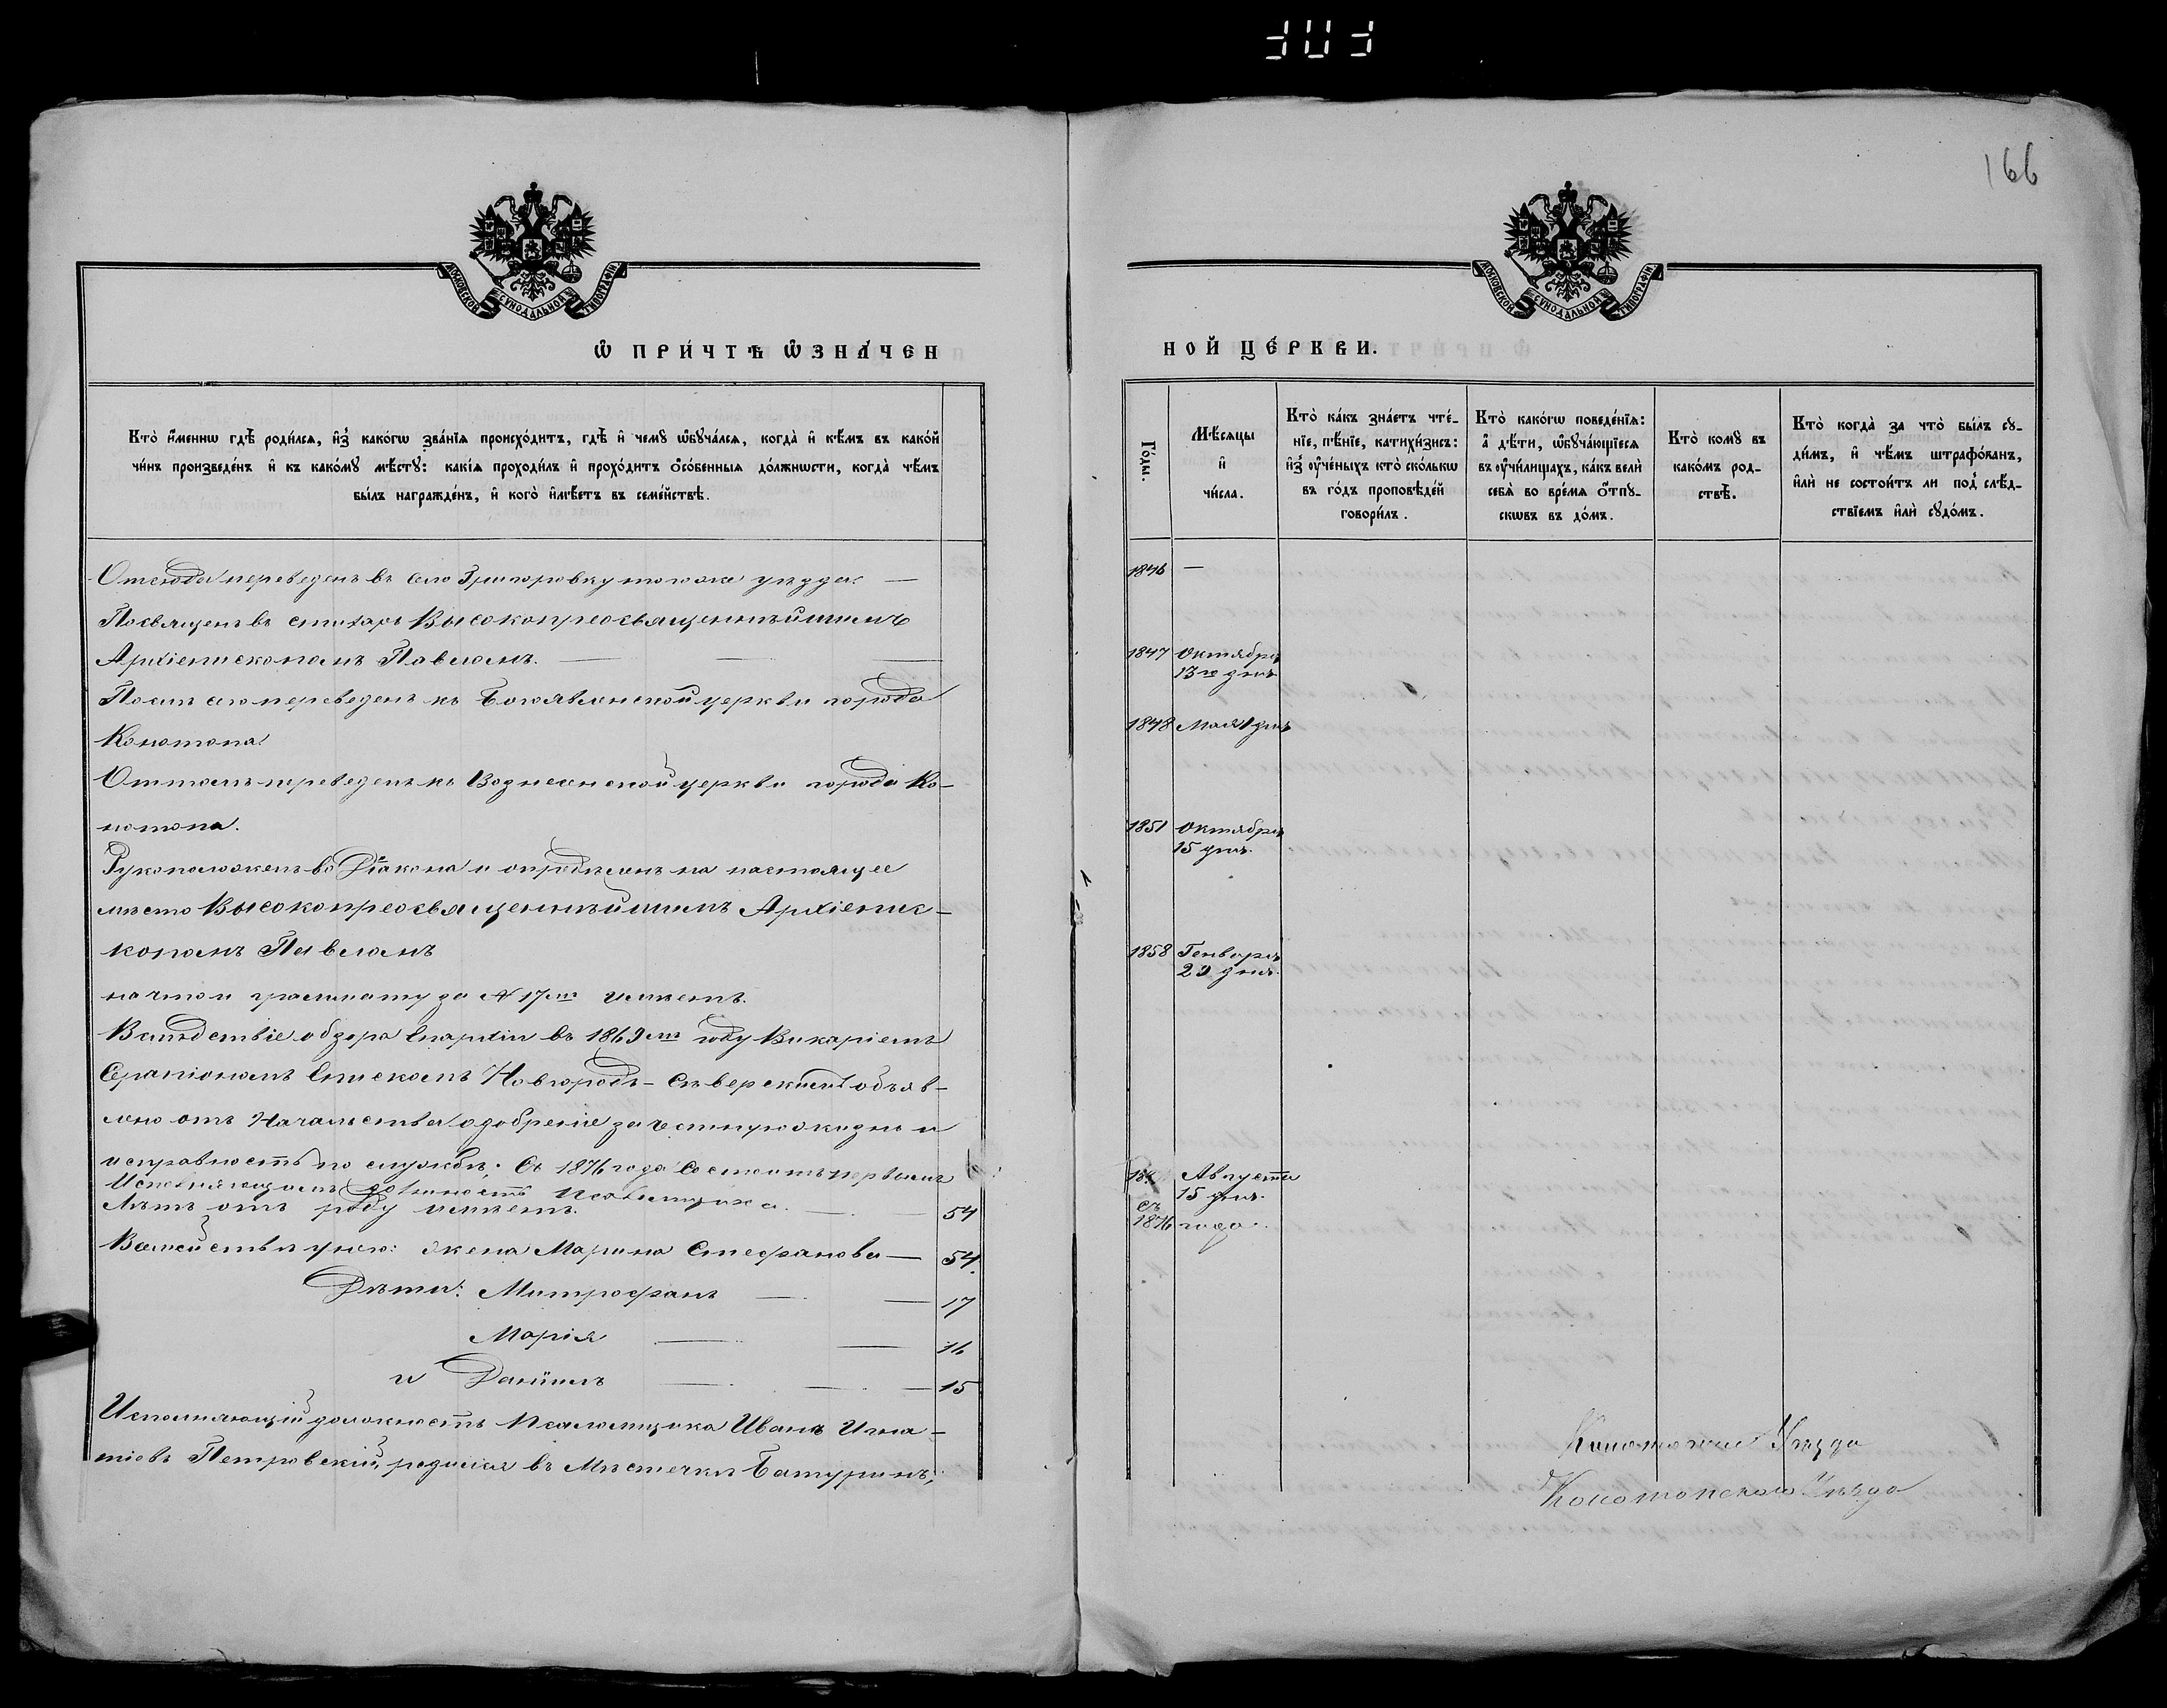 166
МОСКОВСКОЙ СѴНОДАЛЬНОЙ ТИПОГРАФІИ
МОСКОВСКОЙ СѴНОДАЛЬНОЙ ТИПОГРАФІИ
Ѿ ПРИ́ЧТѢ Ѡ҆ЗНА́ЧЕН
НОЙ ЦЕ́РКВИ.
Кто̀ и҆́менно гдѣ̀ роди́лсѧ, и҆з̾ како́гѡ зва́нїѧ происхо́дитъ, гдѣ̀ и҆ чемꙋ̀ ѡ҆бꙋча́лсѧ, когда̀ и҆ кѣ́мъ въ како́й
чи́нъ произведе́нъ и҆ къ како́мꙋ мѣ́стꙋ: какі̑ѧ проходи́лъ и҆ прохо́дитъ ѻ҆со́бенныѧ до́лжности, когда̀ чѣ́мъ
бы́лъ награжде́нъ, и҆ кого̀ и҆мѣ́етъ въ семе́йствѣ.
Го́ды.
Мѣ́сѧцы
и҆
чи́сла.
Кто̀ ка́къ зна́етъ чте́-
нїе, пѣ́нїе, катихи́зисъ:
и҆з̾ ᲂу҆че́ныхъ кто̀ ско́лькѡ
въ го́дъ проповѣ́дей
говори́лъ.
Кто̀ како́гѡ поведе́нїѧ:
а҆ дѣ́ти, ѡ҆бꙋча́ющїесѧ
въ ᲂу҆чи́лищахъ, ка́къ велѝ
себѧ̀ во вре́мѧ ѻ҆́тпꙋ-
сковъ въ до́мъ.
Кто̀ комꙋ̀ въ
како́мъ род-
ствѣ̀.
Кто̀ когда̀ за что̀ бы́лъ сꙋ-
ди́мъ, и҆ чѣ́мъ штрафо́ванъ,
и҆лѝ не состои́тъ ли под̾ слѣ́д-
ствїемъ и҆лѝ сꙋдо́мъ.
Отсюда переведенъ въ село Григоровку тогоже уѣзда. —
1846 —
Посвященъ въ стихарь Высокопреосвященнѣйшимъ
Архіепископомъ Павломъ. —
1847 Октября
13го дня
Послѣ сего переведенъ къ Богоявленской церкви города
Конотопа.
1848 Мая 1 дня
Оттоль переведенъ къ Вознесенской церкви города Ко-
нотопа.
1851 Октября
15 дня.
Рукоположенъ во Діакона и опредѣленъ на настоящее
мѣсто Высокопреосвященнѣйшимъ Архіепис-
копомъ Павломъ
1858 Генваря
20 дня.
на что и грамматуза № 17мъ имѣетъ.
Вслѣдствіе обзора Епархіи въ 1869мъ году Викаріемъ
Серапіономъ Епископъ Новгородъ-Сѣверскимъ объяв-
лено отъ Начальства одобреніе за честную жизнь и
исправность по службѣ. Съ 1876 года состоитъ первымъ
Исполняющимъ должность Псаломщика.
Августа
15 дня.
съ
1876 года.
Лѣтъ отъ роду имѣетъ. — 54
Въ семействѣ у него: жена Марина Стефанова — 54.
Дѣти: Митрофанъ — 17
Марія — 16
и Даніилъ — 15
Исполняющій должность Псаломщика Иванъ Игна-
тіевъ Петровскій, родился въ Мѣстечкѣ Батуринѣ,
Уѣзда
Конотопскаго Уѣзда